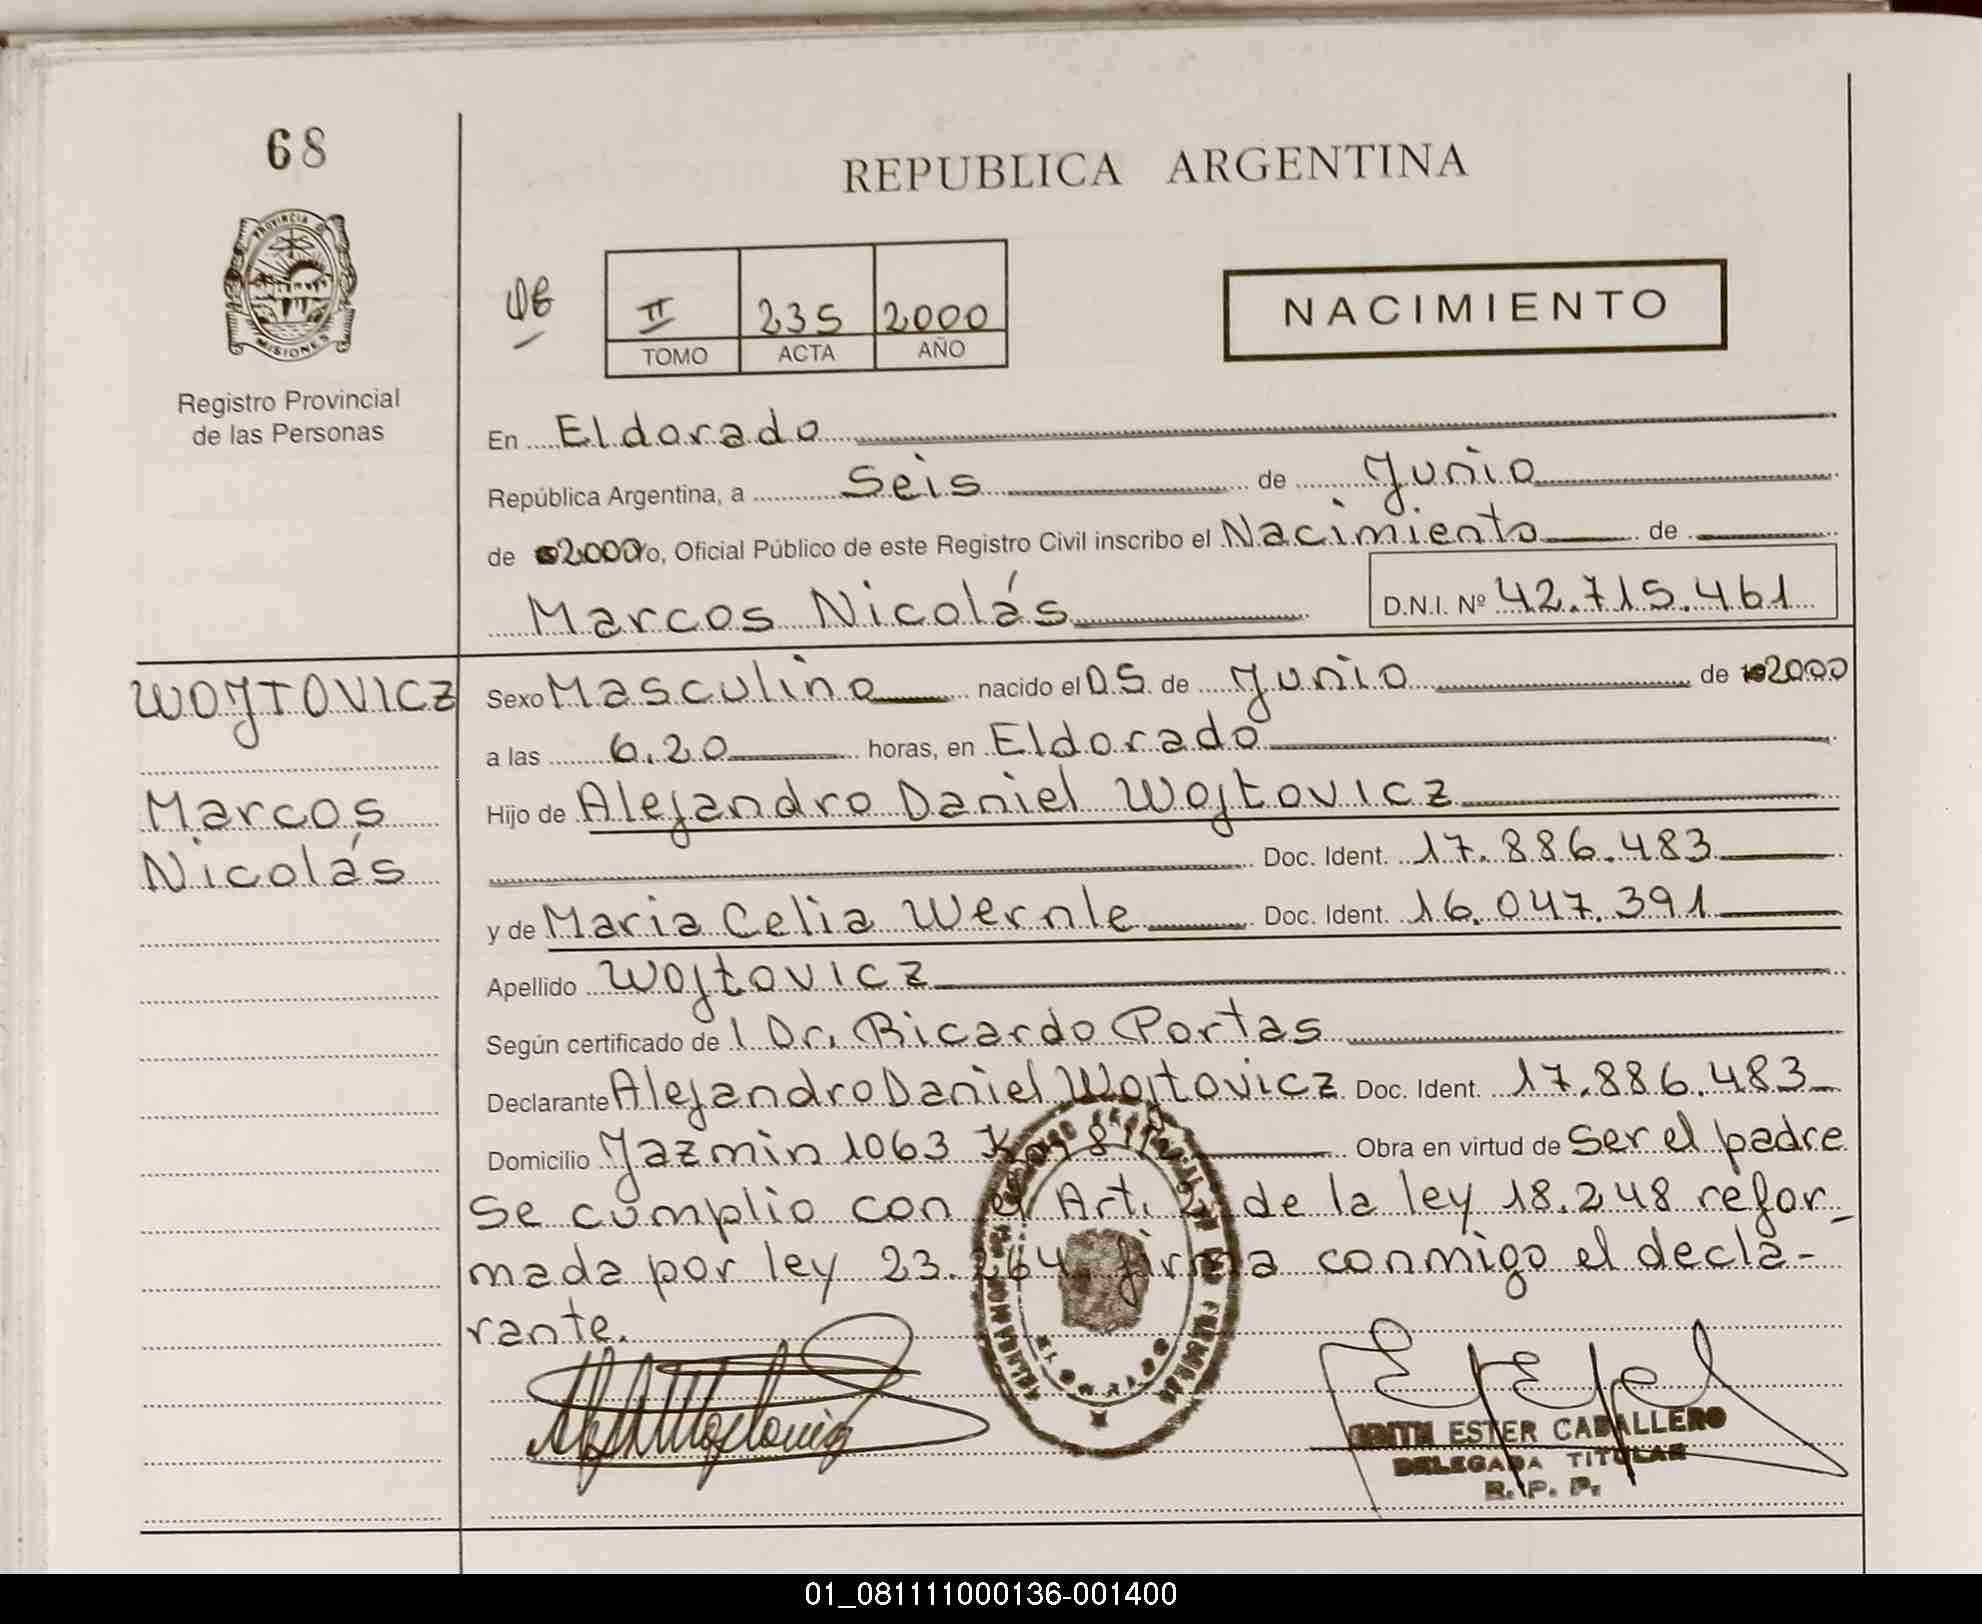 68
PROVINCIA
MISIONES
Registro Provincial
de las Personas
REPUBLICA ARGENTINA
II 235 2000
TOMO ACTA AÑO
NACIMIENTO
En Eldorado
República Argentina, a Seis de Junio
de 2000 yo, Oficial Público de este Registro Civil inscribo el Nacimiento de
Marcos Nicolás D.N.I. Nº 42.715.461
WOJTOVICZ
Marcos
Nicolás
Sexo Masculino nacido el 05 de Junio de 2000
a las 6.20 horas, en Eldorado
Hijo de Alejandro Daniel Wojtovicz
Doc. Ident. 17.886.483
y de Maria Celia Wernle Doc. Ident. 16.047.391
Apellido Wojtovicz
Según certificado de l Dr. Ricardo Portas
Declarante Alejandro Daniel Wojtovicz Doc. Ident. 17.886.483
Domicilio Jazmin 1063 Obra en virtud de Ser el padre
Se cumplio con el Art. de la ley 18.248 refor_
mada por ley 23.264 firma conmigo el decla-
rante.
EDITH ESTER CABALLERO
DELEGADA TITULAR
R. P. P.
01_081111000136-001400